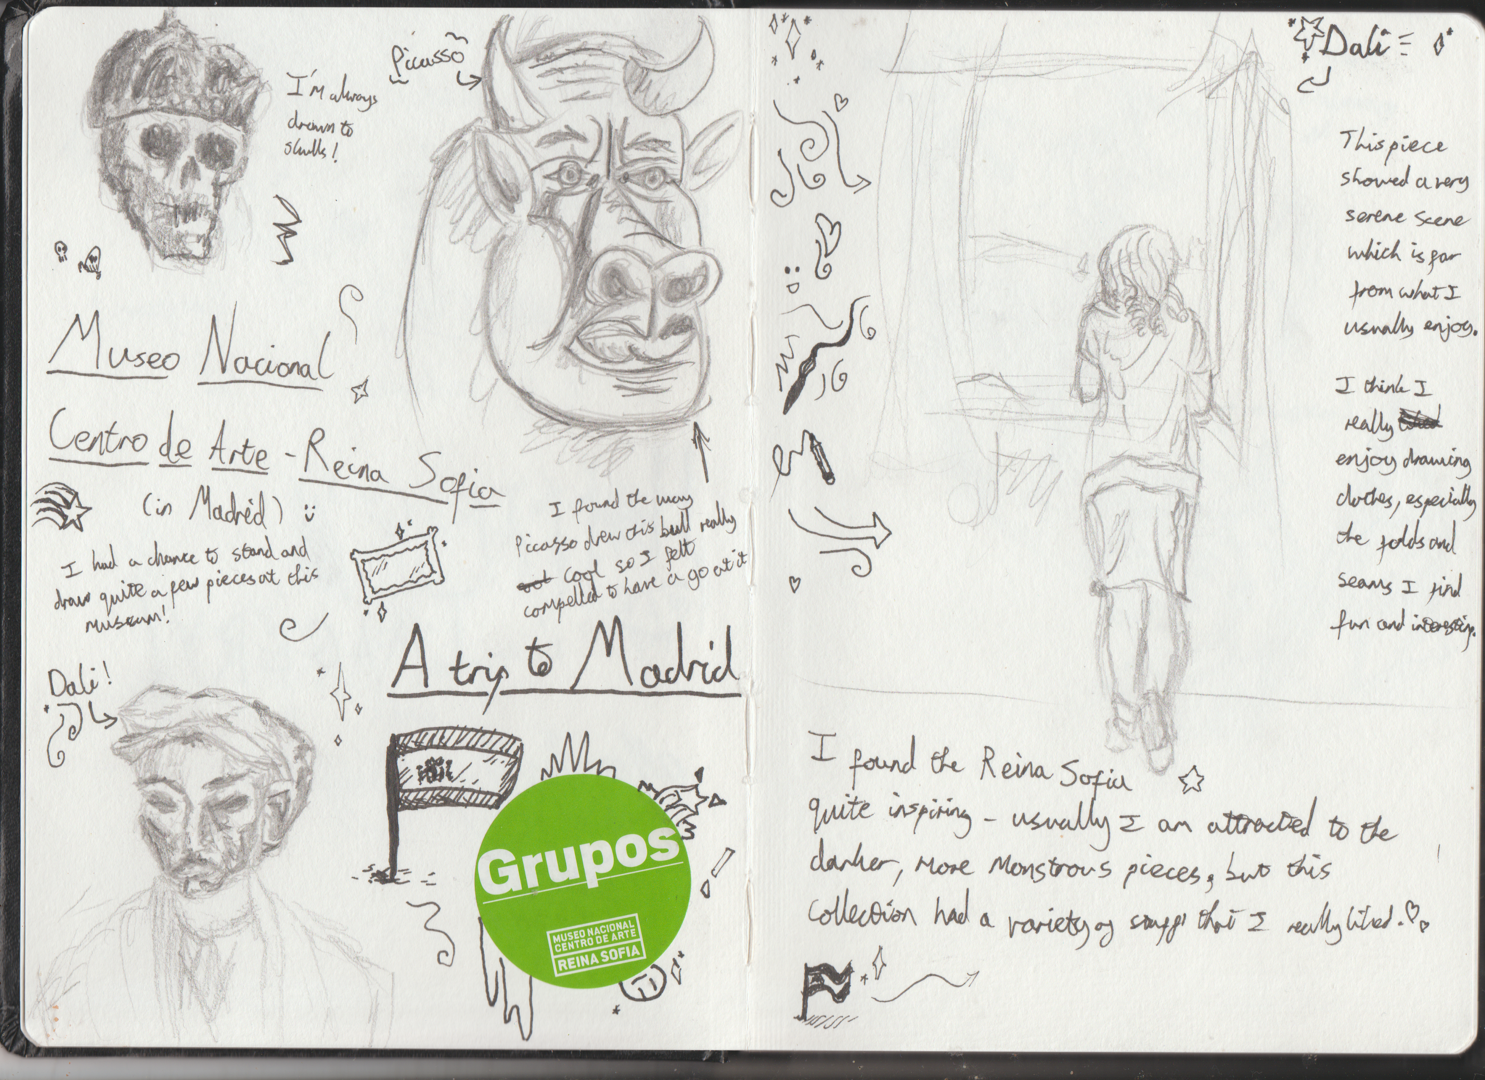 I'm always
drawn to
skulls!
Picasso
Museo Nacional
Centro de Arte - Reina Sofia
(in Madrid) :)
I had a chance to stand and
draw quite a few pieces at this
museum!
I found the way
Picasso drew this bull really
cool so I felt
compelled to have a go at it
Dali!
A trip to Madrid
Grupos
MUSEO NACIONAL
CENTRO DE ARTE
REINA SOFIA
Dali
This piece
showed a very
serene scene
which is far
from what I
usually enjoy.
I think I
really
enjoy drawing
clothes, especially
the folds and
seams I find
fun and interesting.
I found the Reina Sofia
quite inspiring - usually I am attracted to the
darker, more monstrous pieces, but this
collection had a variety of stuff that I really liked.